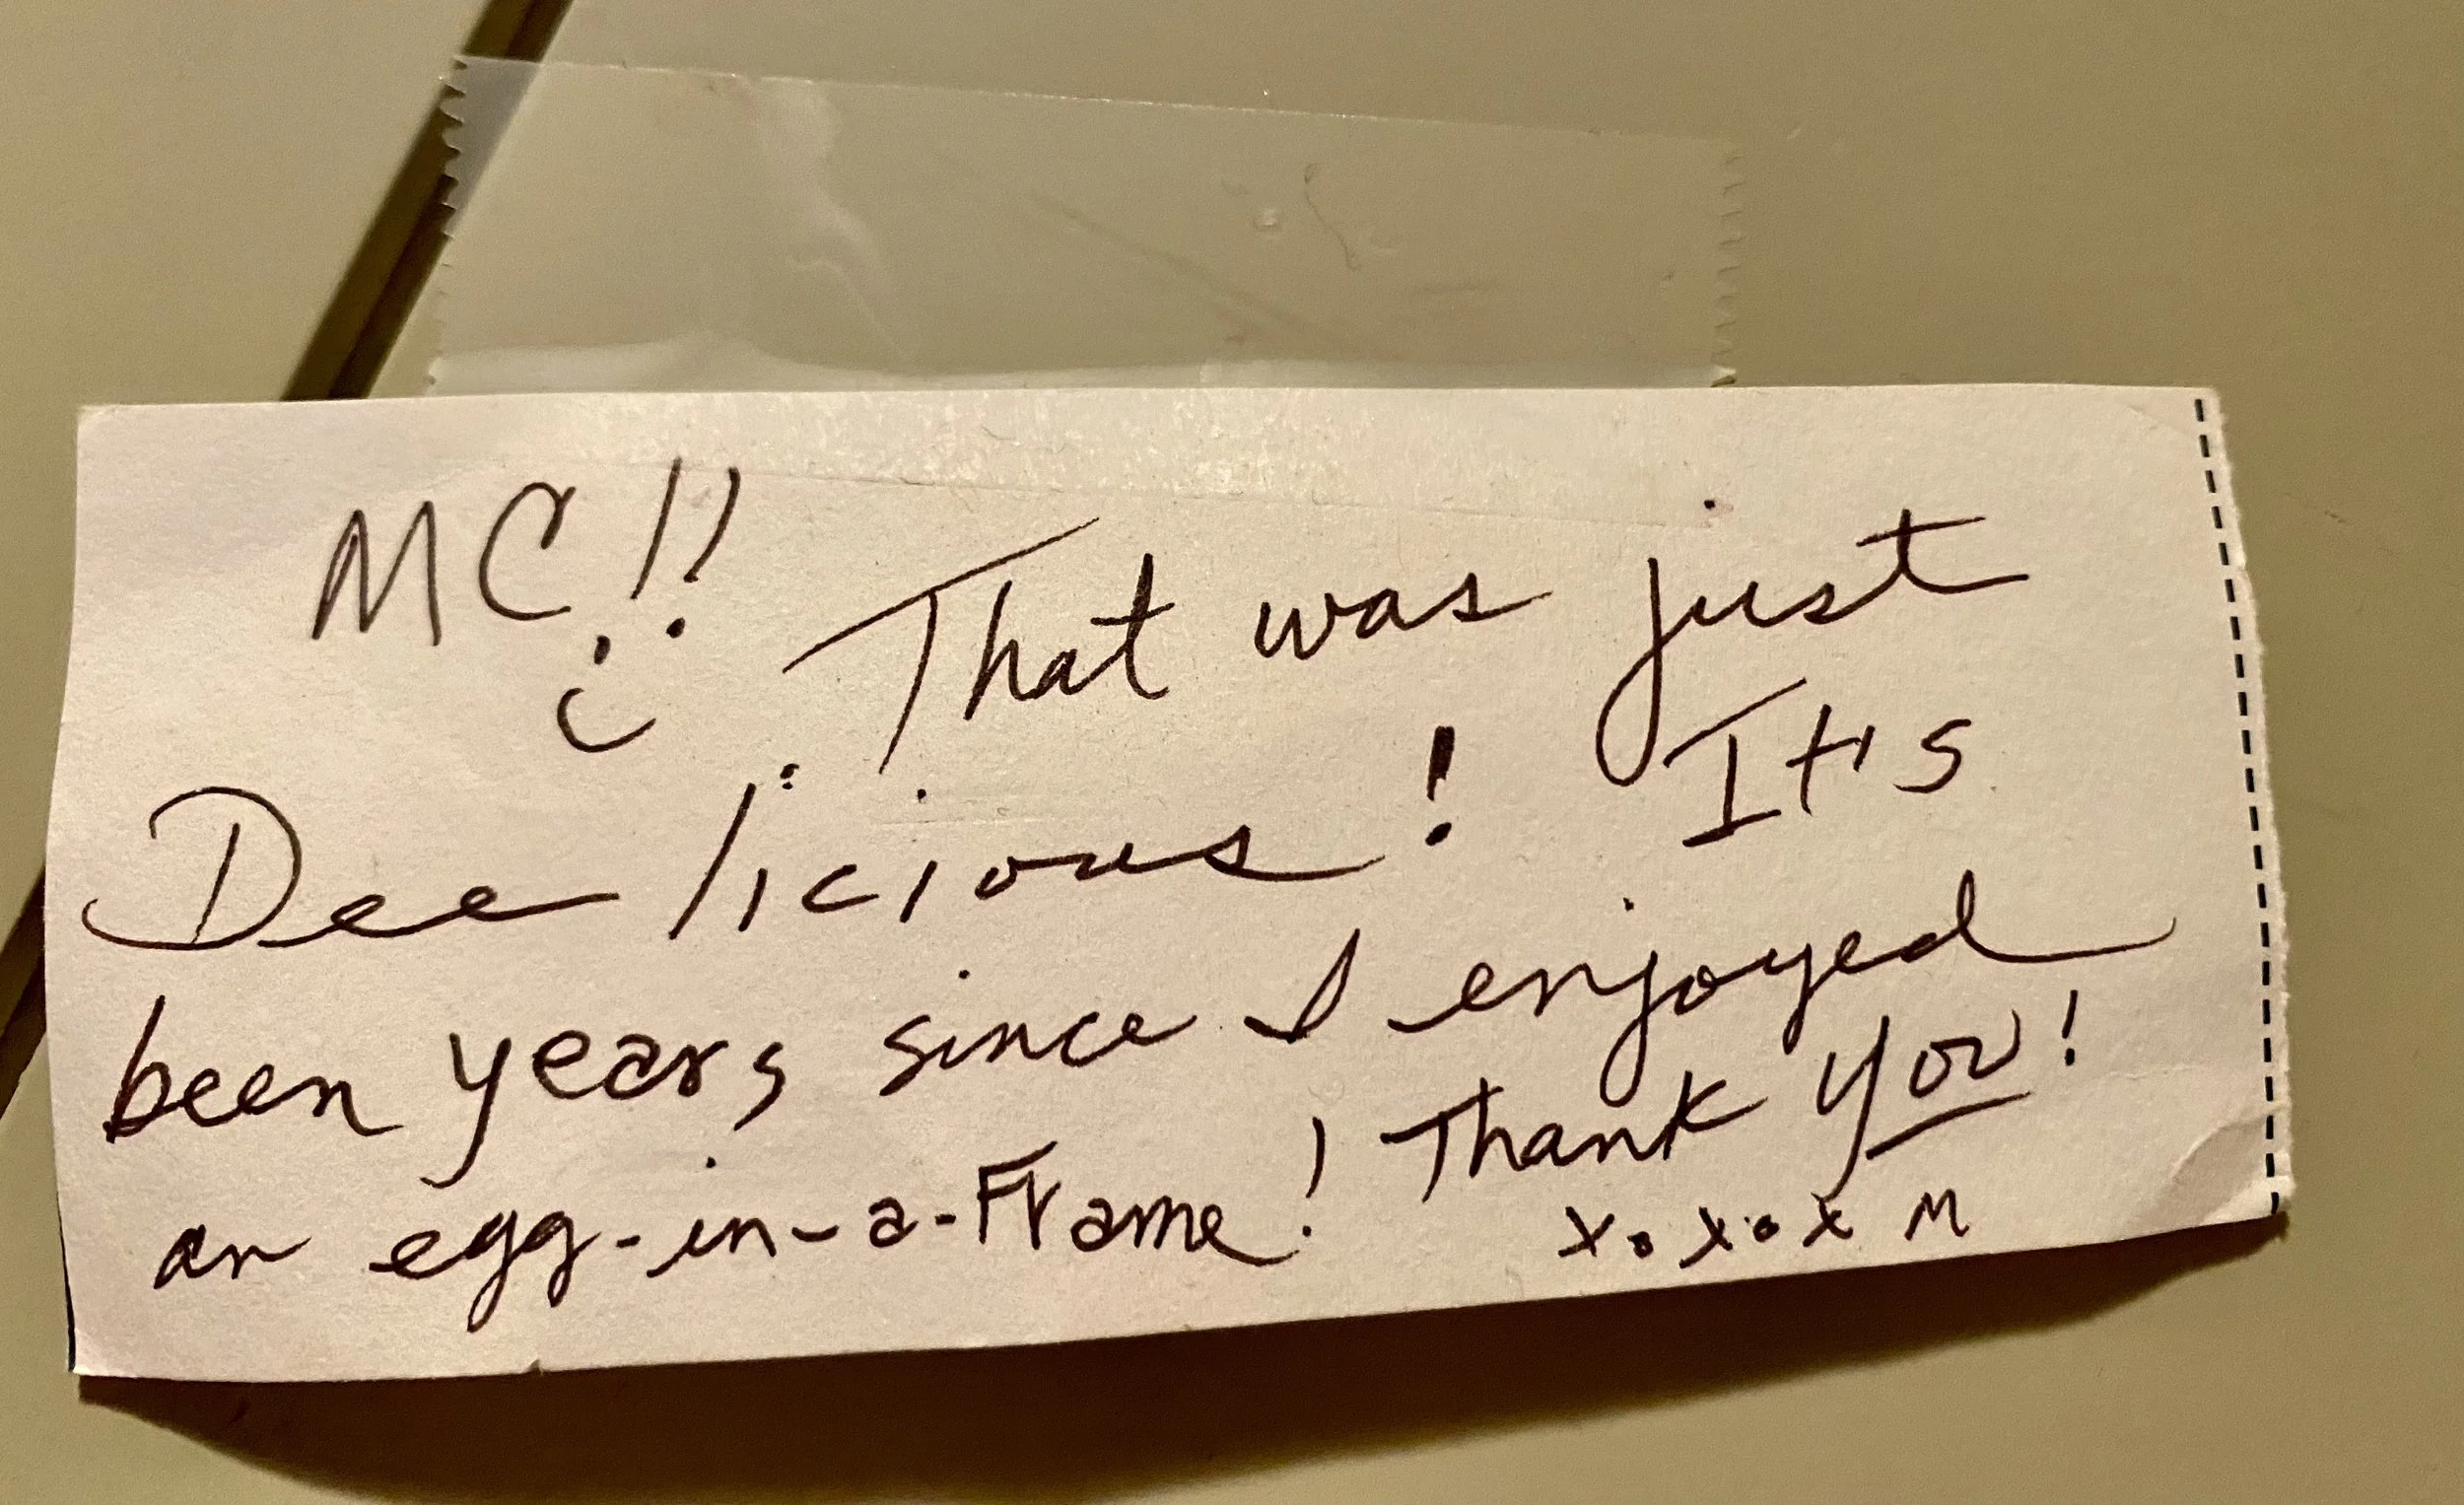 MC!!
That was just
Dee licious! It's
been years since I enjoyed
an egg-in-a-Frame! Thank you!
xoxox M